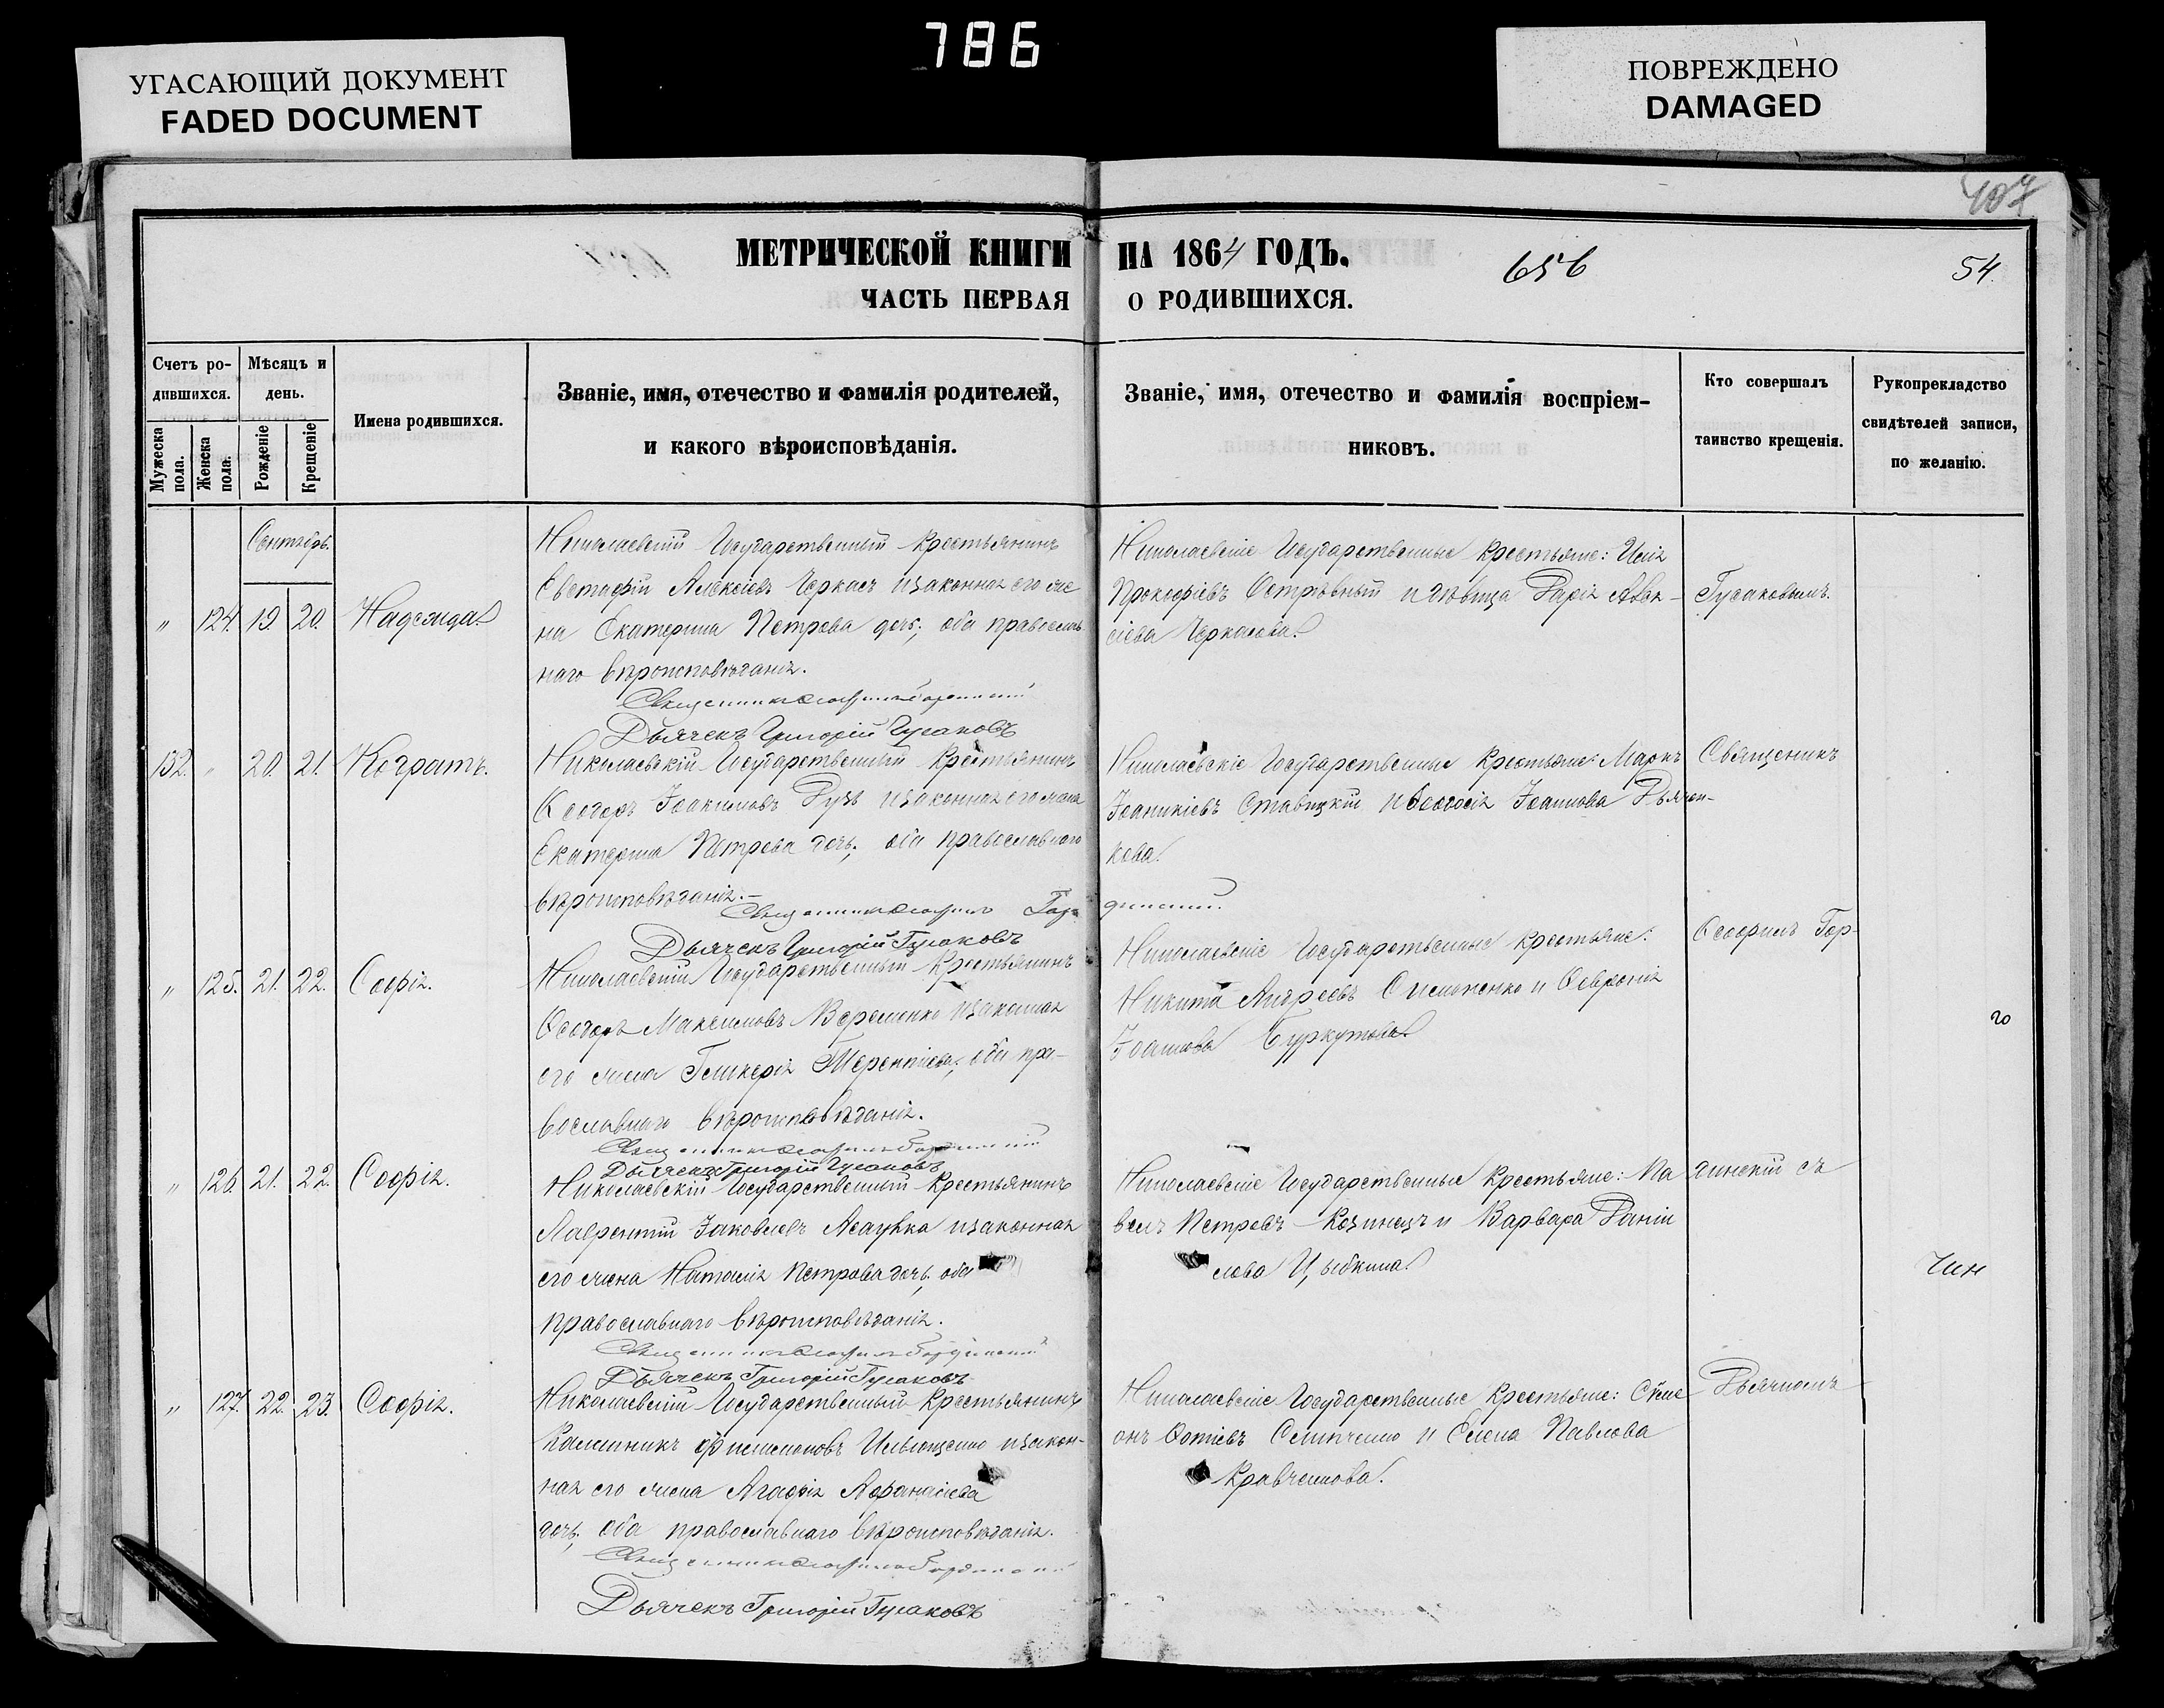 786
УГАСАЮЩИЙ ДОКУМЕНТ
FADED DOCUMENT
ПОВРЕЖДЕНО
DAMAGED
407
МЕТРИЧЕСКОЙ КНИГИ НА 1864 ГОДЪ.
656
54.
ЧАСТЬ ПЕРВАЯ О РОДИВШИХСЯ.
Счетъ ро-
дившихся.
Мужеска
пола.
Женска
пола.
Мѣсяцъ и
день.
Рожденіе
Крещеніе
Имена родившихся.
Званіе, имя, отечество и фамилія родителей,
и какого вѣроисповѣданія.
Званіе, имя, отечество и фамилія воспріем-
никовъ.
Кто совершалъ
таинство крещенія.
Рукоприкладство
свидѣтелей записи,
по желанію.
Сентябрь.
„ 124. 19. 20. Надежда.
Николаевскій Государственный крестьянинъ
Евстафій Алексіевъ Черкасъ и законная его же
на Екатерина Петрова дочь; оба православ
наго вѣроисповѣданія.
Священникъ
Дьячекъ Григорій Гусаковъ
Николаевскіе Государственные крестьяне: Илія
Прокофіевъ и дѣвица Дарія Алек-
сіева Черкасова.
Гусаковымъ.
132. „ 20. 21. Кодратъ.
Николаевскій Государственный крестьянинъ
Ѳеодоръ Іоакимовъ и законная его жена
Екатерина Петрова дочь; оба православнаго
вѣроисповѣданія.
Священникъ Ѳеофилъ Гор
динскій.
Дьячекъ Григорій Гусаковъ
Николаевскіе Государственные крестьяне: Маркъ
Іоаникіевъ Ставицкій и Ѳеодосія Іоаннова Дьячен-
кова.
Священикъ
„ 125. 21. 22. Софія.
Николаевскій Государственный крестьянинъ
Ѳеодоръ Максимовъ и законная
его жена Гликерія Терентіева; оба пра-
вославнаго вѣроисповѣданія.
Священникъ
Дьячекъ Григорій Гусаковъ
Николаевскіе Государственные крестьяне:
Никита Андреевъ Симоненко и Ѳевронія
Іоаннова Буркутова.
Ѳеофилъ Гор-
го
„ 126. 21. 22. Софія.
Николаевскій Государственный крестьянинъ
Лаврентій Іаковлевъ и законная
его жена Наталія Петрова дочь; оба
православнаго вѣроисповѣданія.
Священникъ
Дьячекъ Григорій Гусаковъ
Николаевскіе Государственные крестьяне: Па
велъ Петровъ Козинецъ и Варвара Даніи
лова Цыбкина.
динскій съ
Чин
„ 127. 22. 23. Софія.
Николаевскій Государственный крестьянинъ
Калинникъ Филимоновъ и закон-
ная его жена Агафія Афанасіева
дочь, оба православнаго вѣроисповѣданія.
Священникъ
Дьячекъ Григорій Гусаковъ
Николаевскіе Государственные крестьяне: Симе
онъ Ѳотіевъ и Елена Павлова
Кравченкова.
Дьячкомъ